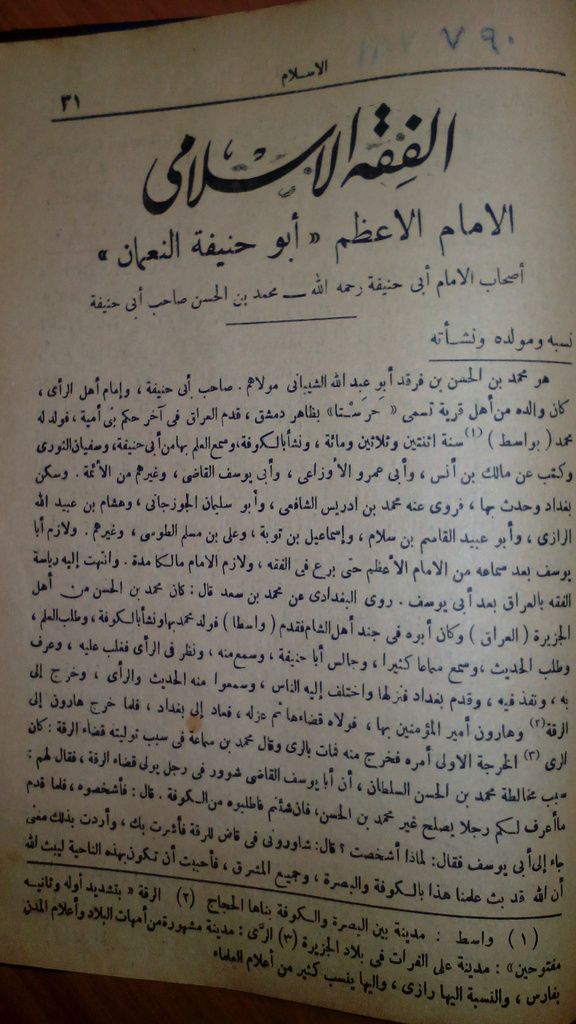 ٧٩٠
الاسلام
٣١
الفقه الاسلامى
الامام الاعظم « أبو حنيفة النعمان »
أصحاب الامام أبى حنيفة رحمه الله — محمد بن الحسن صاحب أبى حنيفة
نسبه ومولده ونشأته
هو محمد بن الحسن بن فرقد أبو عبد الله الشيبانى مولاهم . صاحب أبى حنيفة ، وإمام أهل الرأى ،
كان والده من أهل قرية تسمى « حرستا» بظاهر دمشق ، قدم العراق فى آخر حكم بنى أمية ، فولد له
محمد ( بواسط ) (١) سنة اثنتين وثلاثين ومائة ، ونشأ بالكوفة، وسمع العلم بها من أبى حنيفة، وسفيان الثورى
وكتب عن مالك بن أنس ، وأبى عمرو الأوزاعى ، وأبى يوسف القاضى ، وغيرهم من الأئمة . وسكن
بغداد وحدث بها ، فروى عنه محمد بن ادريس الشافعى ، وأبو سليمان الجوزجانى ، وهشام بن عبيد الله
الرازى ، وأبو عبيد القاسم بن سلام ، وإسماعيل بن توبة ، وعلى بن مسلم الطوسى ، وغيرهم . ولازم أبا
يوسف بعد سماعه من الامام الأعظم حتى برع فى الفقه ، ولازم الامام مالكا مدة . وانتهت إليه رياسة
الفقه بالعراق بعد أبى يوسف . روى البغدادى عن محمد بن سعد قال : كان محمد بن الحسن من أهل
الجزيرة ( العراق ) وكان أبوه فى جند أهل الشام فقدم ( واسطا ) فولد محمد بها ونشأ بالكوفة ، وطلب العلم ،
وطلب الحديث ، وسمع سماعا كثيرا ، وجالس أبا حنيفة ، وسمع منه ، ونظر فى الرأى فغلب عليه ، وعرف
به ، ونفذ فيه ، وقدم بغداد فنزلها واختلف إليه الناس ، وسمعوا منه الحديث والرأى ، وخرج إلى
الرقة (٢) وهارون أمير المؤمنين بها ، فولاه قضاءها ثم عزله ، فعاد إلى بغداد ، فلما خرج هارون إلى
الرى (٣) الخرجة الاولى أمره فخرج منه فمات بالرى وقال محمد بن سماعة فى سبب توليته قضاء الرقة : كان
سبب مخالطة محمد بن الحسن السلطان ، أن أبا يوسف القاضى شوور فى رجل يولى قضاء الرقة ، فقال لهم :
ما أعرف لكم رجلا يصلح غير محمد بن الحسن، فان شئتم فاطلبوه من الكوفة . قال : فأشخصوه ، فلما قدم
جاء إلى أبى يوسف فقال : لماذا أشخصت ؟ قال: شاورونى فى قاض للرقة فأشرت بك ، وأردت بذلك معنى
أن الله قد بث علمنا هذا بالكوفة والبصرة ، وجميع المشرق ، فأحببت أن تكون بهذه الناحية ليبث الله
(١) واسط : مدينة بين البصرة والكوفة بناها الحجاج (٢) الرقة « بتشديد أوله وثانيه
مفتوحين» : مدينة على الفرات فى بلاد الجزيرة (٣) الرَّى : مدينة مشهورة من أمهات البلاد وأعلام المدن
بفارس ، والنسبة اليها رازى ، واليها ينسب كثير من أعلام العلماء